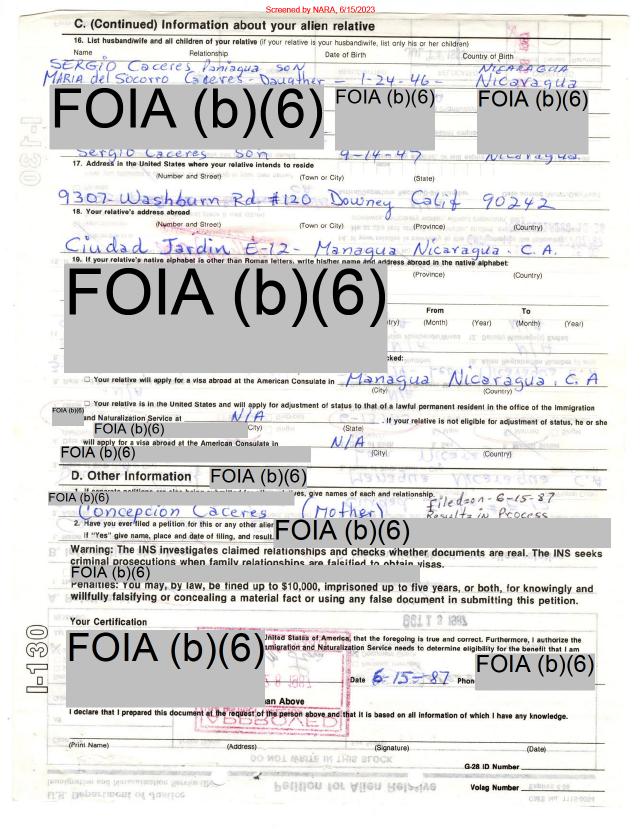 Screened by NARA, 6/15/2023
C. (Continued) Information about your alien relative
16. List husband/wife and all children of your relative (if your relative is your husband/wife, list only his or her children)
Name Relationship Date of Birth Country of Birth
SERGIO Caceres Paniagua SON NICARAGUA
MARIA del Socorro Caceres - Daugther - 1-24-46 - Nicaragua
FOIA (b)(6) FOIA (b)(6) FOIA (b)(6)
Sergio Caceres Son 9-14-47 Nicaragua.
17. Address in the United States where your relative intends to reside
(Number and Street) (Town or City) (State)
9307- Washburn Rd #120 Downey Calif 90242
18. Your relative's address abroad
(Number and Street) (Town or City) (Province) (Country)
Ciudad Jardin E-12- Managua - Nicaragua. C. A.
19. If your relative's native alphabet is other than Roman letters, write his/her name and address abroad in the native alphabet:
(Province) (Country)
FOIA (b)(6)
From To
try) (Month) (Year) (Month) (Year)
cked:
□ Your relative will apply for a visa abroad at the American Consulate in Managua Nicaragua. C. A
(City) (Country)
□ Your relative is in the United States and will apply for adjustment of status to that of a lawful permanent resident in the office of the Immigration
FOIA (b)(6) and Naturalization Service at N/A . If your relative is not eligible for adjustment of status, he or she
FOIA (b)(6) (City) (State)
will apply for a visa abroad at the American Consulate in N/A
FOIA (b)(6) (City) (Country)
D. Other Information FOIA (b)(6)
FOIA (b)(6) ves, give names of each and relationship.
Concepcion Caceres (Mother) Filed on - 6-15-87
Results in Process
2. Have you ever filed a petition for this or any other alien FOIA (b)(6)
If "Yes" give name, place and date of filing, and result.
Warning: The INS investigates claimed relationships and checks whether documents are real. The INS seeks
criminal prosecutions when family relationships are falsified to obtain visas.
FOIA (b)(6)
Penalties: You may, by law, be fined up to $10,000, imprisoned up to five years, or both, for knowingly and
willfully falsifying or concealing a material fact or using any false document in submitting this petition.
Your Certification
FOIA (b)(6) United States of America, that the foregoing is true and correct. Furthermore, I authorize the
migration and Naturalization Service needs to determine eligibility for the benefit that I am
Date 6-15-87 Phone FOIA (b)(6)
an Above
APPROVED
I declare that I prepared this document at the request of the person above and that it is based on all information of which I have any knowledge.
(Print Name) (Address) (Signature) (Date)
DO NOT WRITE IN THIS BLOCK
G-28 ID Number
Petition for Alien Relative
Volag Number
Immigration and Naturalization Service
U.S. Department of Justice
OMB No. 1115-0054
I-130
OCT 13 1987